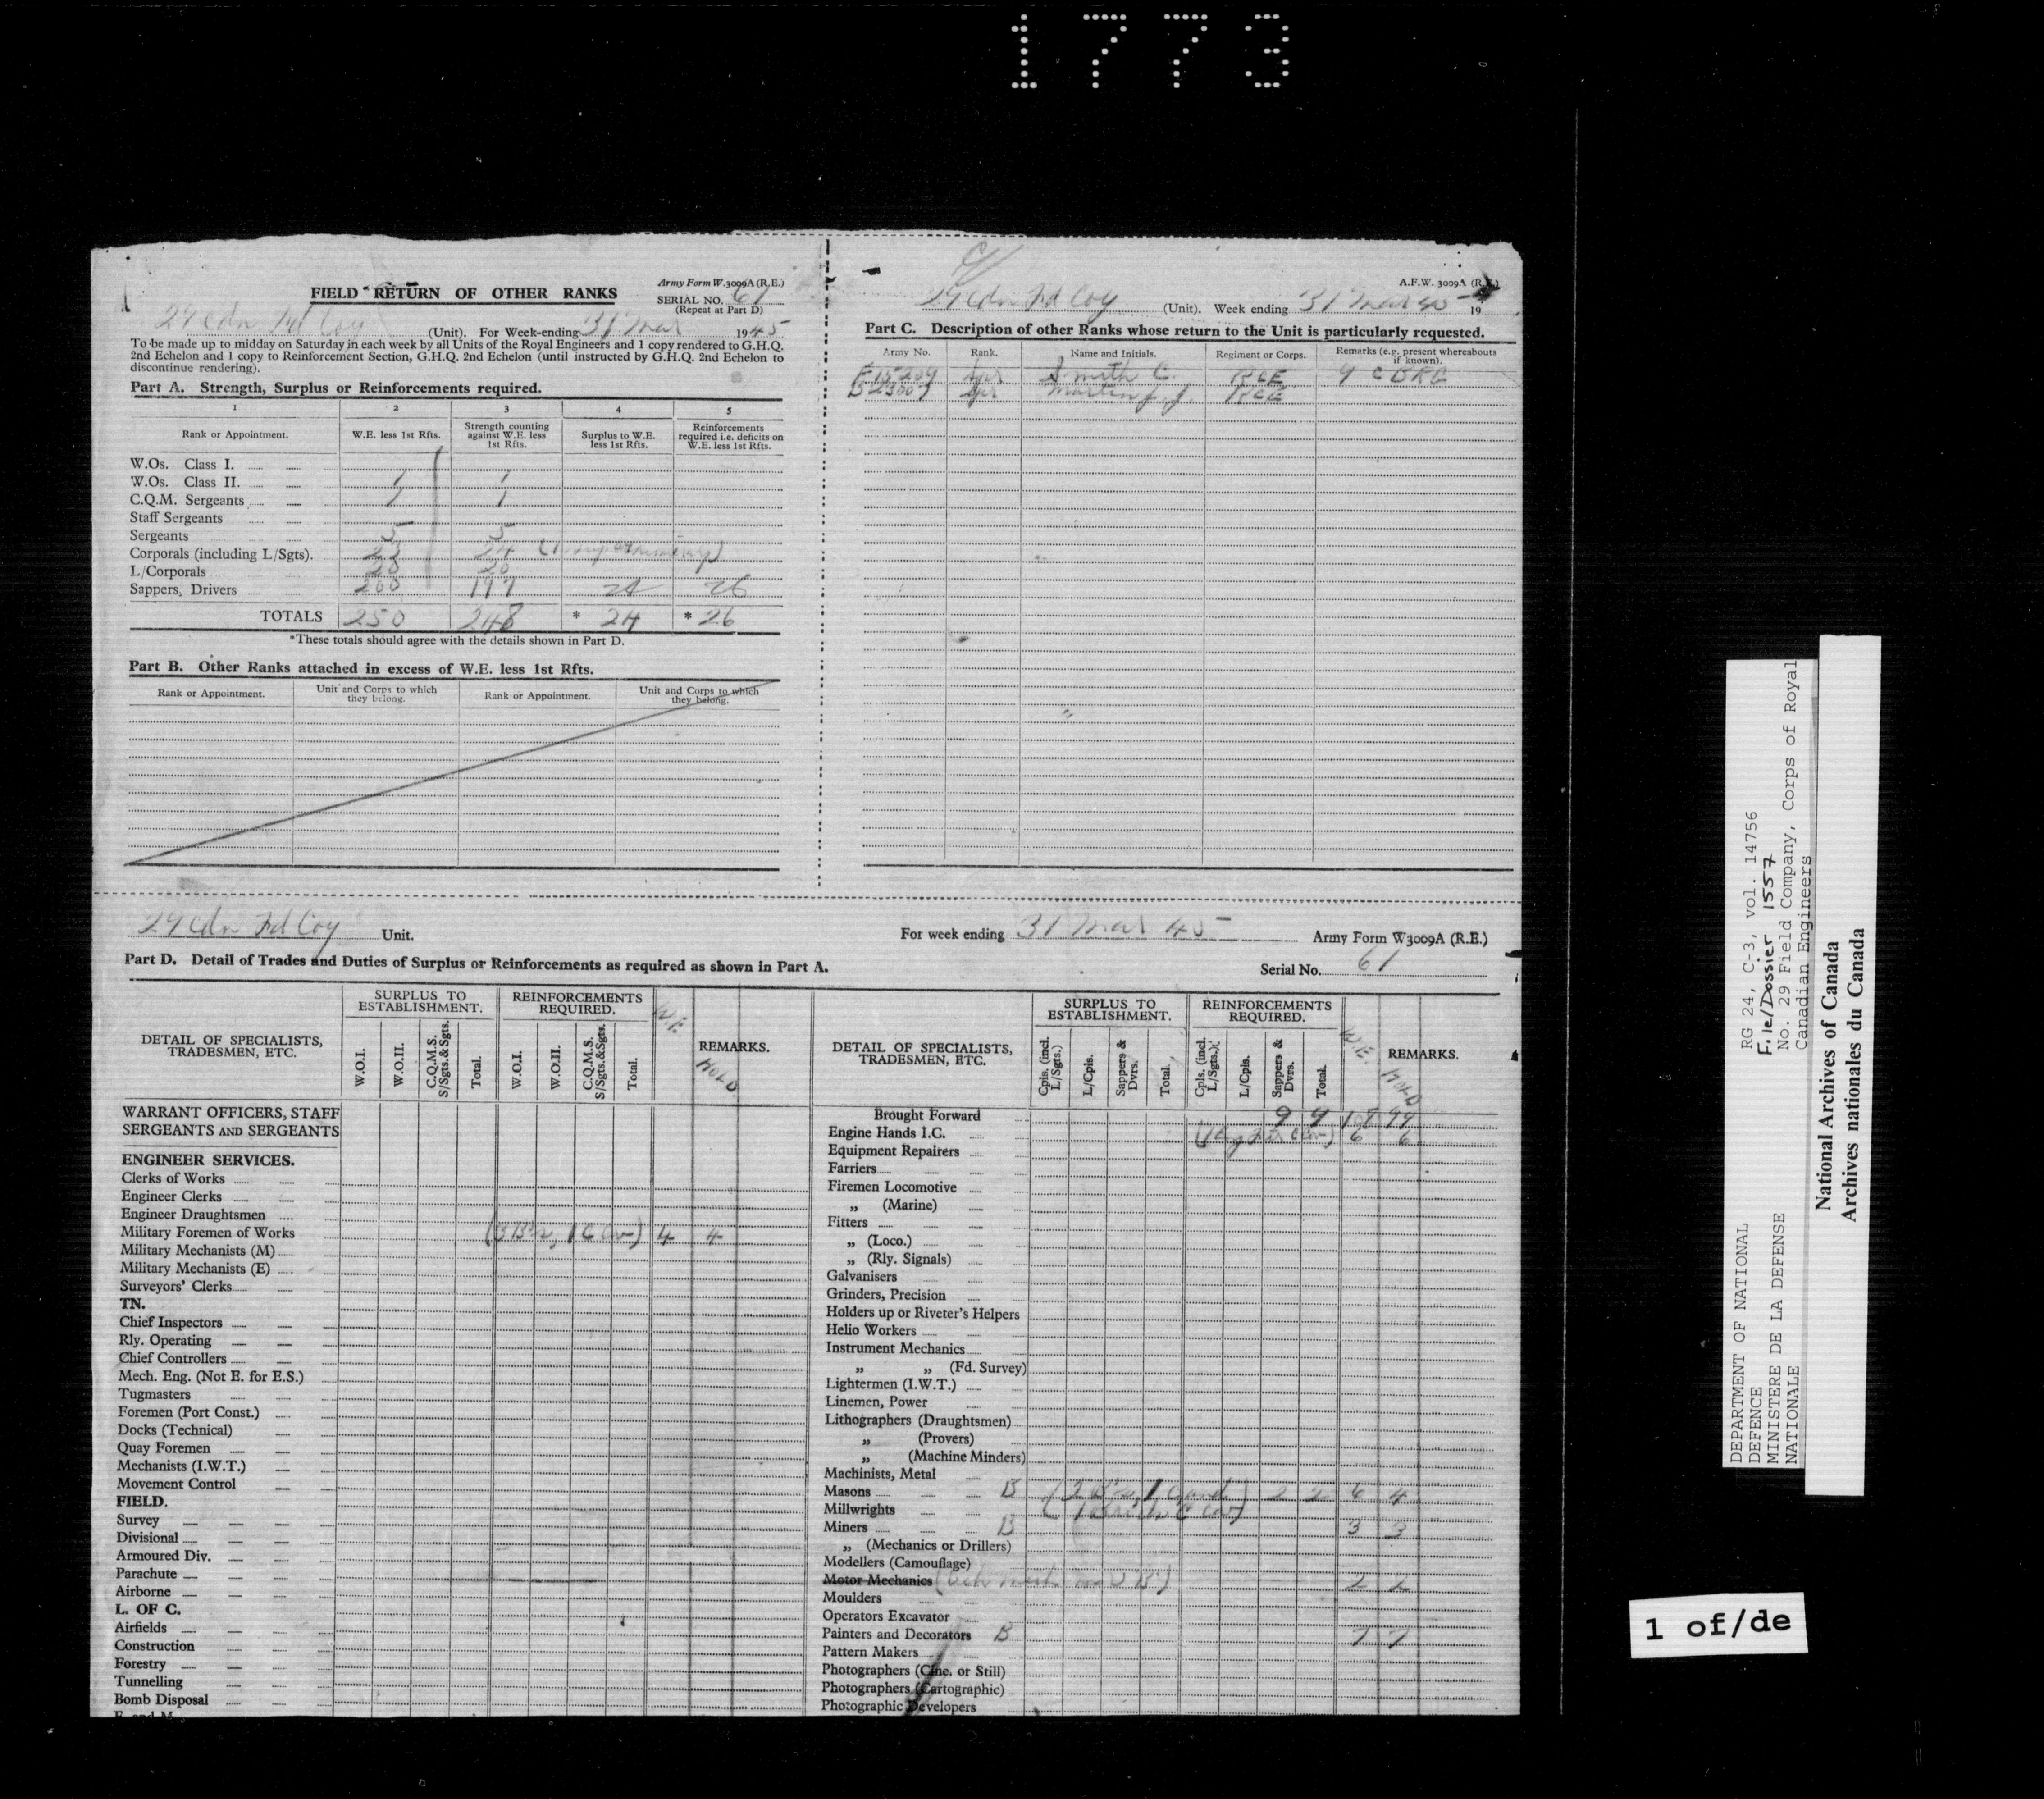 1773
FIELD RETURN OF OTHER RANKS
Army Form W.3009A (R.E.)
SERIAL NO. 61
(Repeat at Part D)
29 Cdn Fd Coy (Unit). For Week-ending 31 Mar 1945
To be made up to midday on Saturday in each week by all Units of the Royal Engineers and 1 copy rendered to G.H.Q.
2nd Echelon and 1 copy to Reinforcement Section, G.H.Q. 2nd Echelon (until instructed by G.H.Q. 2nd Echelon to
discontinue rendering).
Part A. Strength, Surplus or Reinforcements required.
1 2 3 4 5
Rank or Appointment. W.E. less 1st Rfts. Strength counting against W.E. less 1st Rfts. Surplus to W.E. less 1st Rfts. Reinforcements required i.e. deficits on W.E. less 1st Rfts.
W.Os. Class I.
W.Os. Class II. 1 1
C.Q.M. Sergeants 1 1
Staff Sergeants
Sergeants 5 5
Corporals (including L/Sgts). 23 24
L/Corporals 20 20
Sappers, Drivers 200 197 24 26
TOTALS 250 248 * 24 * 26
*These totals should agree with the details shown in Part D.
Part B. Other Ranks attached in excess of W.E. less 1st Rfts.
Rank or Appointment. Unit and Corps to which they belong. Rank or Appointment. Unit and Corps to which they belong.
A.F.W. 3009A (R.E.)
29 Cdn Fd Coy (Unit). Week ending 31 Mar 45 19
Part C. Description of other Ranks whose return to the Unit is particularly requested.
Army No. Rank. Name and Initials. Regiment or Corps. Remarks (e.g. present whereabouts if known).
Spr Smith C. RCE
Spr Martin J.J. RCE
29 Cdn Fd Coy Unit.
For week ending 31 Mar 45 Army Form W3009A (R.E.)
Part D. Detail of Trades and Duties of Surplus or Reinforcements as required as shown in Part A.
Serial No. 61
DETAIL OF SPECIALISTS, TRADESMEN, ETC.
SURPLUS TO ESTABLISHMENT.
W.O.I. W.O.II. C.Q.M.S. S/Sgts.&Sgts. Total.
REINFORCEMENTS REQUIRED.
W.O.I. W.O.II. C.Q.M.S. S/Sgts.&Sgts. Total.
W.E. HOLD
REMARKS.
WARRANT OFFICERS, STAFF
SERGEANTS AND SERGEANTS
ENGINEER SERVICES.
Clerks of Works
Engineer Clerks
Engineer Draughtsmen
Military Foremen of Works 4 4
Military Mechanists (M)
Military Mechanists (E)
Surveyors' Clerks
TN.
Chief Inspectors
Rly. Operating
Chief Controllers
Mech. Eng. (Not E. for E.S.)
Tugmasters
Foremen (Port Const.)
Docks (Technical)
Quay Foremen
Mechanists (I.W.T.)
Movement Control
FIELD.
Survey
Divisional
Armoured Div.
Parachute
Airborne
L. OF C.
Airfields
Construction
Forestry
Tunnelling
Bomb Disposal
DETAIL OF SPECIALISTS, TRADESMEN, ETC.
SURPLUS TO ESTABLISHMENT.
Cpls. (incl. L/Sgts.) L/Cpls. Sappers & Dvrs. Total.
REINFORCEMENTS REQUIRED.
Cpls. (incl. L/Sgts.) L/Cpls. Sappers & Dvrs. Total.
W.E. HOLD
REMARKS.
Brought Forward 9 9 108 99
Engine Hands I.C. 6 6
Equipment Repairers
Farriers
Firemen Locomotive
„ (Marine)
Fitters
„ (Loco.)
„ (Rly. Signals)
Galvanisers
Grinders, Precision
Holders up or Riveter's Helpers
Helio Workers
Instrument Mechanics
„ „ (Fd. Survey)
Lightermen (I.W.T.)
Linemen, Power
Lithographers (Draughtsmen)
„ (Provers)
„ (Machine Minders)
Machinists, Metal
Masons B 2 2 6 4
Millwrights
Miners B 3 3
„ (Mechanics or Drillers)
Modellers (Camouflage)
Motor Mechanics 2 2
Moulders
Operators Excavator
Painters and Decorators B 7 7
Pattern Makers
Photographers (Cine. or Still)
Photographers (Cartographic)
Photographic Developers
DEPARTMENT OF NATIONAL
DEFENCE
MINISTERE DE LA DEFENSE
NATIONALE
RG 24, C-3, vol. 14756
File/Dossier 1557
No. 29 Field Company, Corps of Royal
Canadian Engineers
National Archives of Canada
Archives nationales du Canada
1 of/de